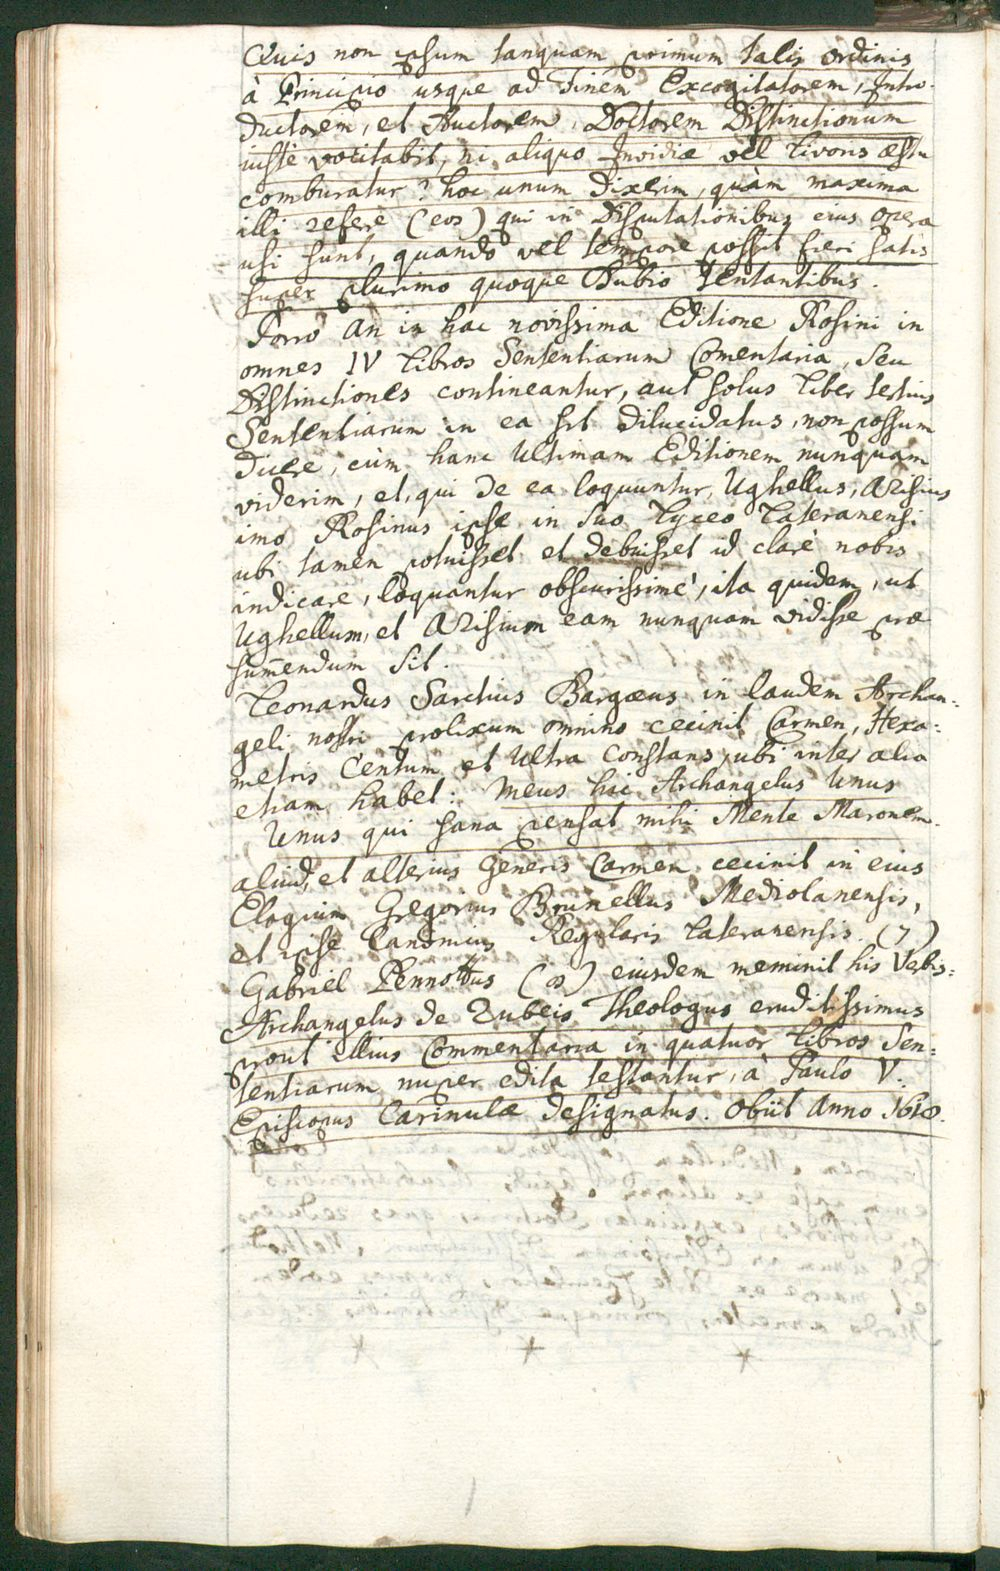 Quis non ipsum tanquam primum talis ordinis
à Principio usque ad Finem Excogitatorem, Intro-
ductorem, et Auctorem, Doctorem Distinctionum
iustè vocitabit, ni aliquo Invidiæ vel Livoris æstu
comburatur? hoc unum dixerim, quàm maxima
illi refere (eos) qui in Disputationibus eius opera
usi sunt, quando vel tempore possit fieri satis
super plurimo quoque Dubio tentantibus.
Porrò an in hac novissima Editione Rosini in
omnes IV Libros Sententiarum Comentaria, seu
Distinctiones contineantur, aut solus Liber tertius
Sententiarum in ea sit dilucidatus, non possum
dicere, cùm hanc Ultimam Editionem nunquam
viderim, et, qui de ea loquuntur, Ughellus, Arisius
imo Rosinus ipse in suo Lyceo Lateranensi
ubi tamen potuisset et debuisset id clarè nobis
indicare, loquantur obscurissimè, ita quidem, ut
Ughellum, et Arisium eam nunquam vidisse præ
sumendum sit.
Leonardus Sarctius Bargæus in laudem Archan-
geli nostri prolixum omnino cecinit Carmen, Hexa-
metris Centum et Ultra constans, ubi inter alia
etiam habet: Meus hic Archangelus Unus
Unus qui sana pensat mihi Mente Maronem.
aliud, et alterius Generis Carmen cecinit in eius
Elogium Gregorius Brunellus Mediolanensis,
et ipse Canonicus Regularis Lateranensis. (7)
Gabriel Pennottus (8) eiusdem meminit his Verbis:
Archangelus de Rubeis Theologus eruditissimus
prout illius Commentaria in quatuor Libros Sen-
tentiarum nuper edita testantur, à Paulo V.
Episcopus Carinulæ designatus. Obiit Anno 1618.